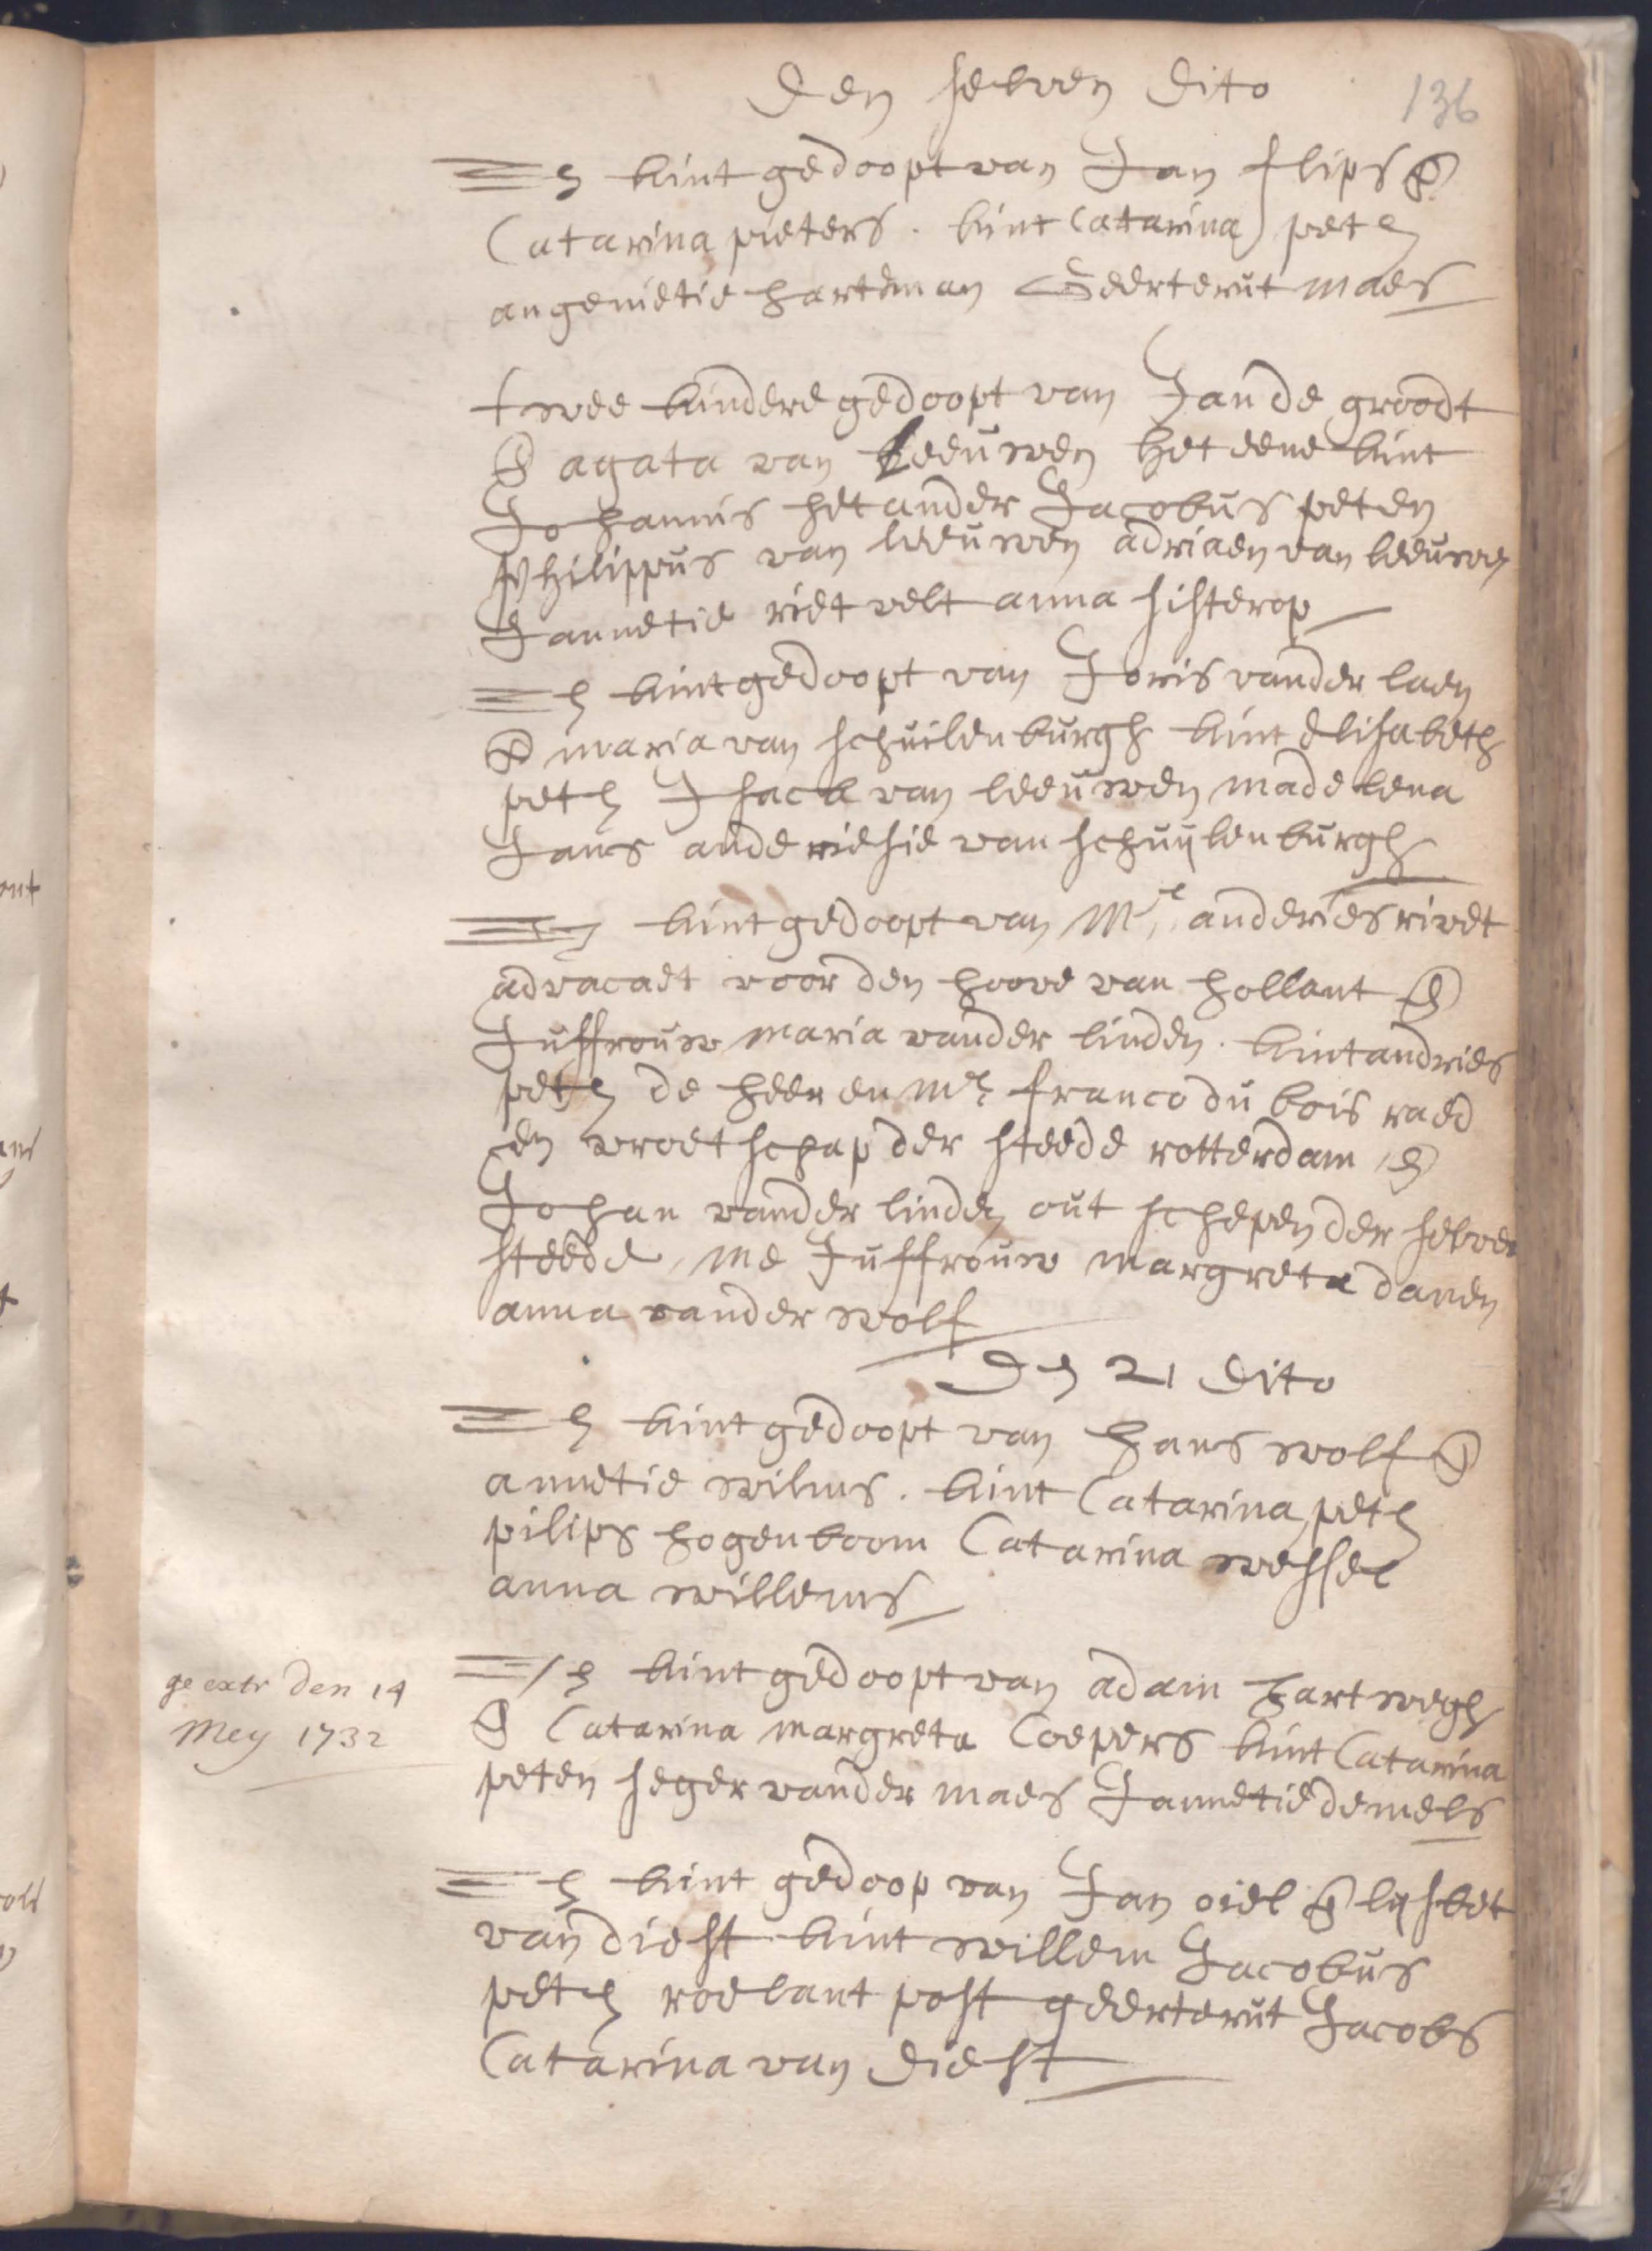 Den selven Dito
136
Een kint gedoopt van Jan flips En
Catarina pieters . kint Catarina peten
angenietie hartman Geerterut maes
twee kindere gedoopt van Jan de groodt
En agata van Leeuwen het eene kint
Johannis het ander Jacobus peten
Philippus van leeuwen adriaen van leeuwen
Jannetie riet velt anna sisterop
Een kint gedoopt van Joris vander laen
En maria van schuilenburgh kint elisabeth
peten Isack van leeuwen madelena
Jans anderiesie van schuijlenburgh
Een kint gedoopt van Mr. anderies rivet
advacaet voor den hoove van hollant En
Juffrouw maria vander linden . kint andries
peten de heer en Mr franco du bois raed
en vroetschap der steede rotterdam En
Johan vander linden out schepen der selver
steede, me Juffrouw margreta danen
anna vander wolf
Den 21 Dito
Een kint gedoopt van hans wolf En
annetie wilms . kint Catarina, peten
pilips hogenboom Catarina wessel
anna willems
ge extr den 14
Mey 1732
Een kint gedoopt van adam hartwegh
En Catarina margreta Coepers kint Catarina
peten seger vander maes Jannetie demels
Een kint gedoop van Jan oiel En lijsbet
van diest kint willem Jacobus
peten roelant post geerterut Jacobs
Catarina van Diest